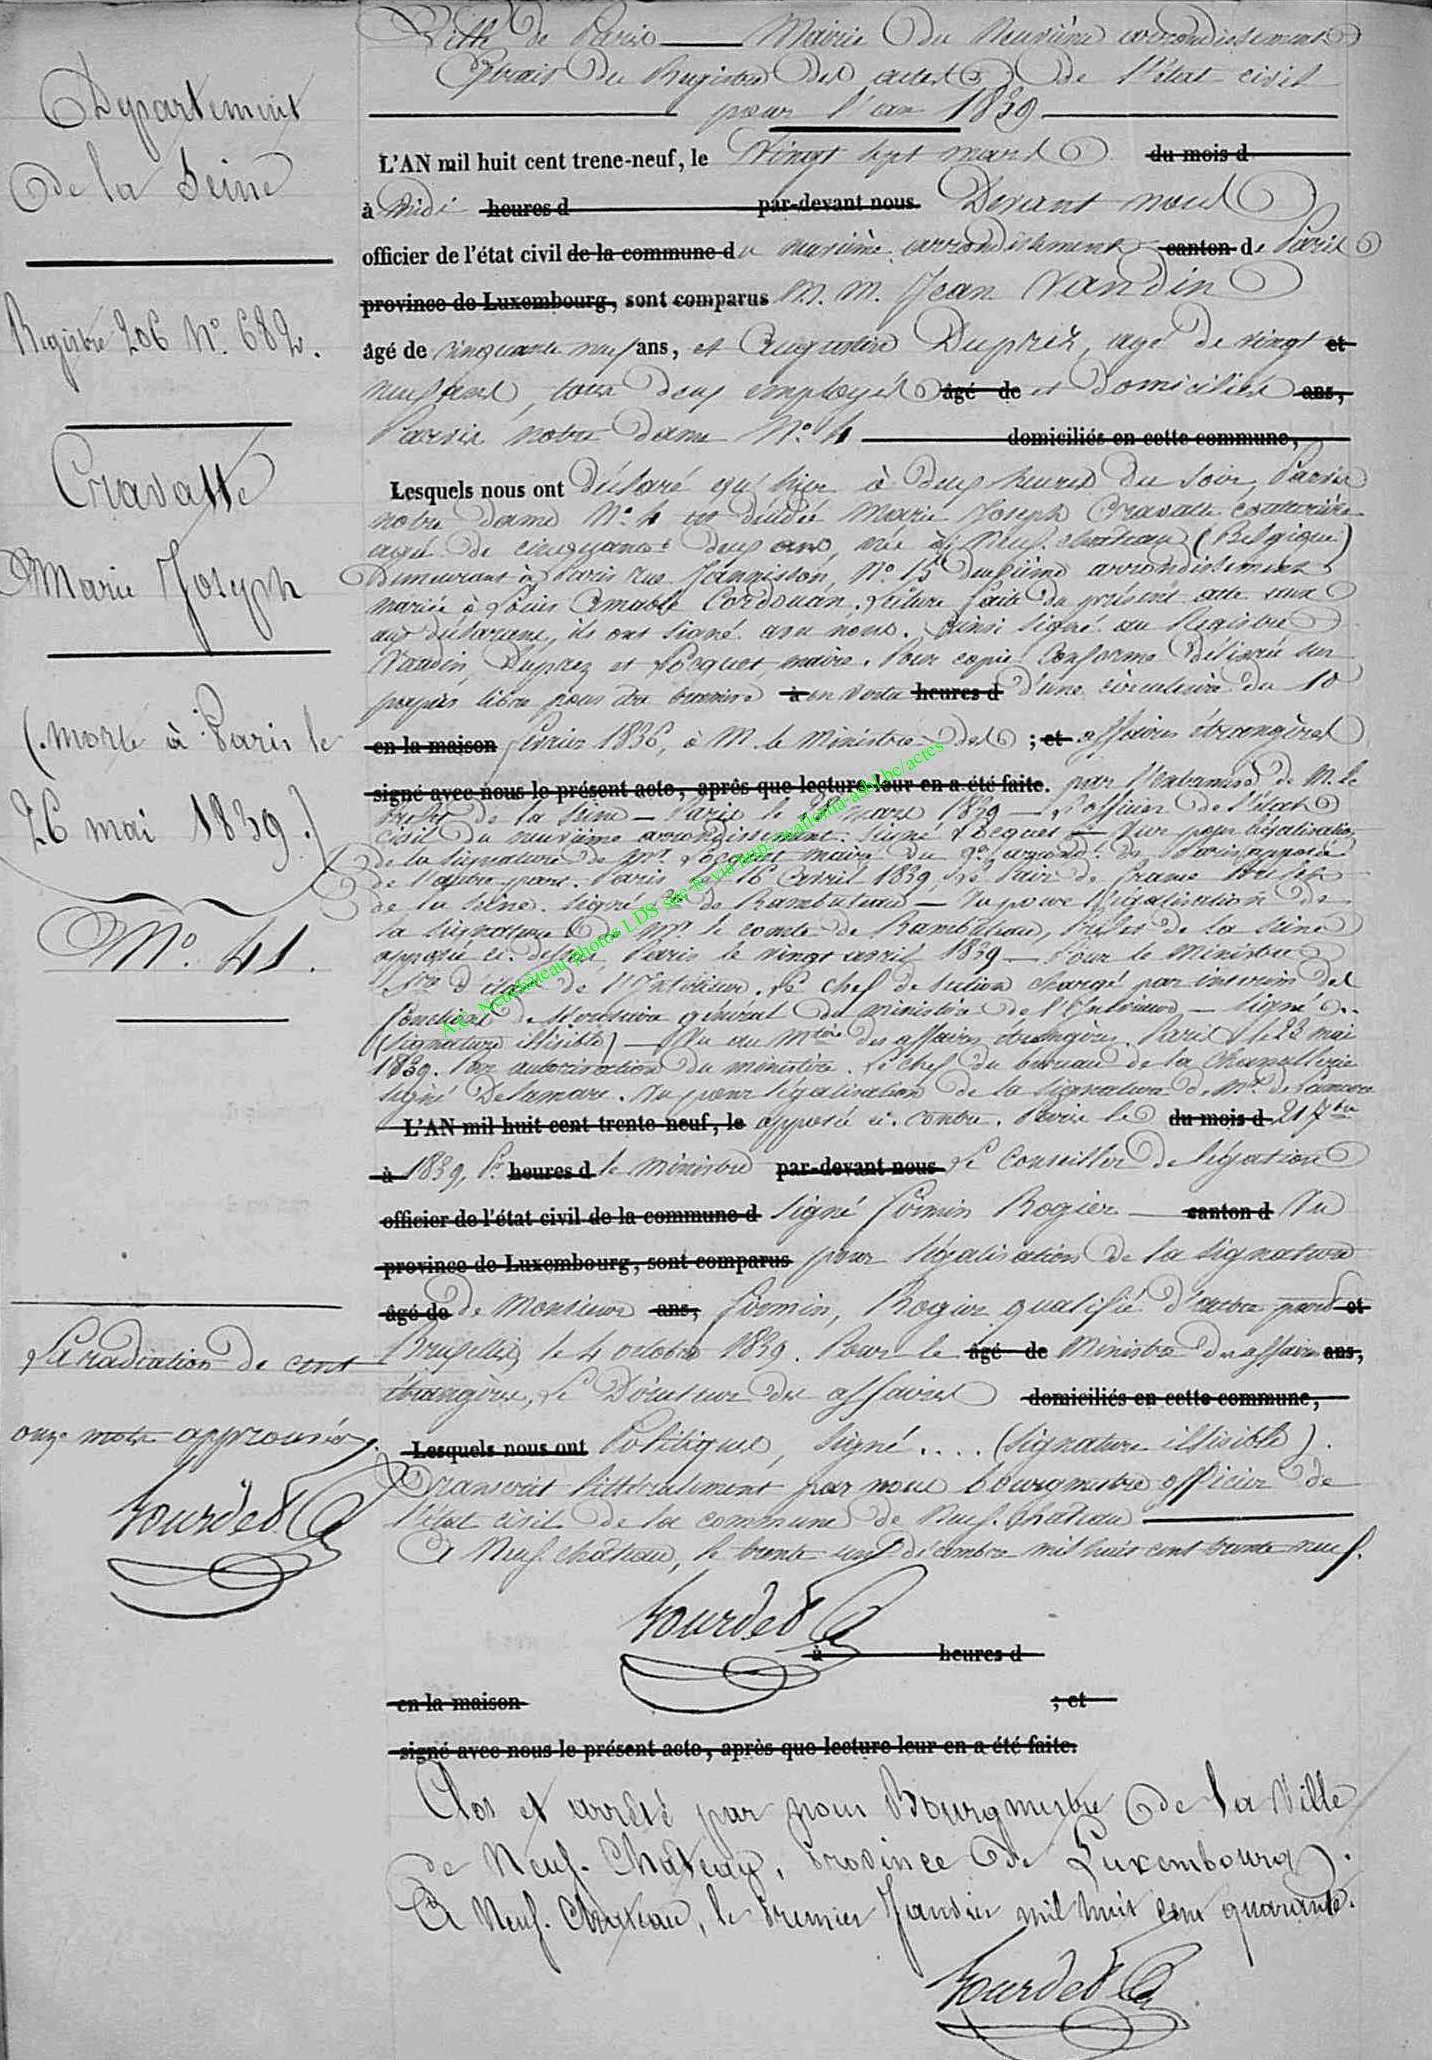 Département
de la Seine
Registre 206 N° 682.
Cravatte
Marie Joseph
(morte à Paris le
26 mai 1839.)
N° 41.
La radiation de cent
onze mots approuvée.
Ville de Paris — Mairie du Neuvième arrondissement
Extrait du Registre des actes de l'état civil
pour l'an 1839
L'AN mil huit cent trene-neuf, le Vingt sept mars du mois d
à Midi heures d par-devant nous Devant nous
officier de l'état civil de la commune du neuvième arrondissement canton de Paris
province de Luxembourg, sont comparus M. M. Jean Vandin
âgé de cinquante neuf ans, et Augustin Duprez, agé de vingt et
neuf ans, tous deux employés âgé de et domiciliés ans,
Parvis notre dame N° 4 domiciliés en cette commune,
Lesquels nous ont déclaré qu'hier à deux heures du soir, Parvis
notre dame N° 4 est décédée Marie Joseph Cravatte couturière
agée de cinquante deux ans, née à Neufchateau (Belgique)
demeurant à Paris rue N° 15 deuxième arrondissement
mariée à Louis Amable Cordouan. Lecture faite du présent acte aux
dits déclarans, ils ont signé avec nous. Ainsi signé au Registre
Vandin, Duprez et Locquet, maire. Pour copie conforme délivrée sur
papier libre pour être à en vertu heures d d'une circulaire du 10
en la maison février 1836, à M. le Ministre des ; et affaires étrangères
signé avec nous le présent acte, après que lecture leur en a été faite. par l'entremise de M. le
Préfet de la Seine — Paris le mars 1839 — L'officier de l'état
civil du neuvième arrondissement. Signé Locquet — Vu pour légalisation
de la signature de Mr. Locquet maire du 9e arrond.t de Paris apposée
de l'autre part. Paris le 16 Avril 1839, Le Pair de france Préfet
de la Seine. Signé de Rambuteau — Vu pour légalisation de
la signature de Mr. le comte de Rambuteau, Préfet de la Seine
apposée ci-dessus, Paris le vingt avril 1839 — Pour le Ministre
d'état de l'Intérieur. Le chef de section chargé par interim des
fonctions de Directeur général du ministère de l'Intérieur — Signé ..
(signature illisible) — Vu au Mtère des affaires étrangères. Paris le 23 mai
1839. Par autorisation du ministère. Le chef du bureau de la Chancellerie
signé Delamare. Vu pour légalisation de la signature de Mr. de Lamare
L'AN mil huit cent trente-neuf, le apposée ci-contre. Paris le du mois d 21 7bre
à 1839, Pr heures d le Ministre par-devant nous Le Conseiller de légation
officier de l'état civil de la commune d signé Firmin Rogier — canton d Vu
province de Luxembourg, sont comparus pour légalisation de la signature
âgé de de Monsieur ans, Firmin, Rogier qualifié d'autre part et
Bruxelles, le 4 octobre 1839. Pour le âgé de Ministre des affaires ans,
étrangères, Le Directeur des affaires domiciliés en cette commune,
Lesquels nous ont Politiques, signé .... (signature illisible).
Transcrit littéralement par nous bourgmestre officier de
l'état civil de la commune de Neufchateau
A Neufchâteau, le trente un décembre mil huit cent trente neuf.
à heures d
en la maison ; et
signé avec nous le présent acte, après que lecture leur en a été faite.
Clos et arrêté par nous Bourgmestre de la Ville
de Neuf-Chateau, Province de Luxembourg.
A Neuf-Chateau, le Premier Janvier mil huit cent quarante.